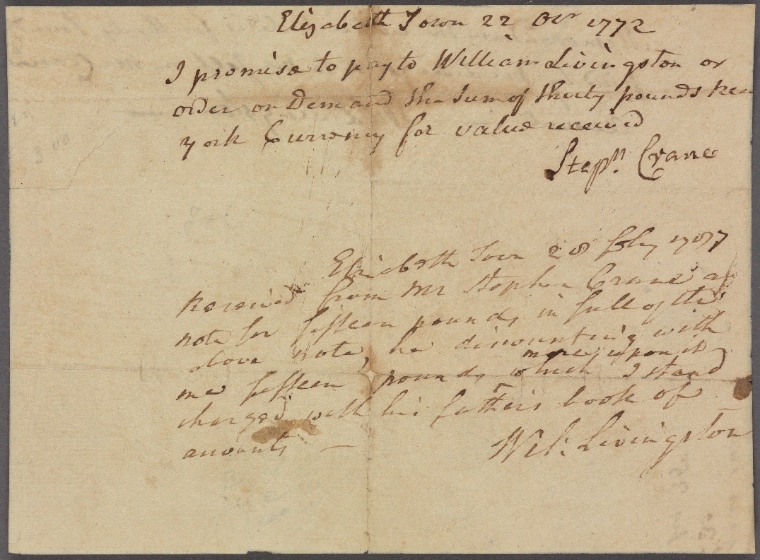 Elizabeth Town 22 Octr 1772
I promise to pay to William Livingston or
order on Demand the Sum of thirty pounds New
york Currency for value received
Stepn. Crane
Elizabeth Town 28 July 1787
Received from Mr Stephen Crane a
note for fifteen pounds in full of the
above note, he discounting with
me fifteen pounds more upon it
which I stand
charged with his father's book of
accounts —
Wil. Livingston